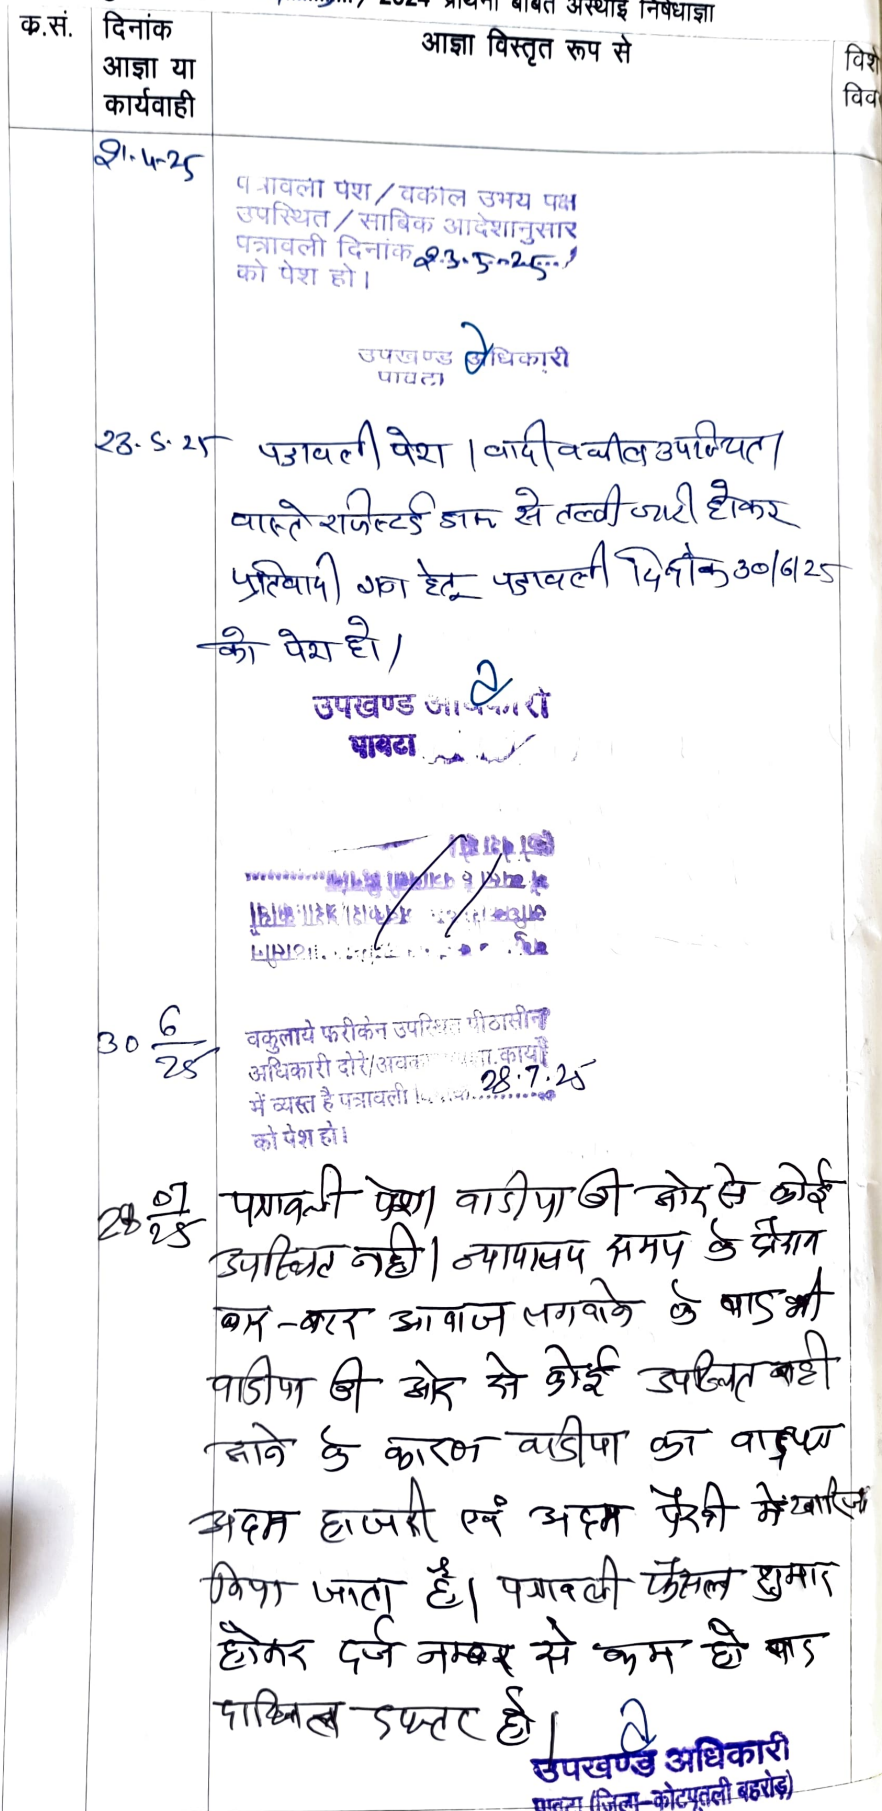 2024 प्रार्थना बाबत अस्थाई निषेधाज्ञा
क.सं.
दिनांक
आज्ञा या
कार्यवाही
आज्ञा विस्तृत रूप से
विशे
विव
21.4.25
पत्रावली पेश / वकील उभय पक्ष
उपस्थित / साबिक आदेशानुसार
पत्रावली दिनांक 23.5.25
को पेश हो।
उपखण्ड अधिकारी
पावटा
23.5.25 पत्रावली पेश । वादी वकील उपस्थित।
वास्ते रजिस्टर्ड डाक से तलबी जारी होकर
प्रतिवादी गण हेतू पत्रावली दिनांक 30/6/25
को पेश हो।
उपखण्ड अधिकारी
पावटा
30 6/25
वकुलाये फरीकेन उपस्थित पीठासीन
अधिकारी दोरे/अवकाश कार्यो
में व्यस्त है पत्रावली दिनांक 28.7.25
को पेश हो।
28 07/25 पत्रावली पेश। वादीया की ओर से कोई
उपस्थित नही। न्यायालय समय के दौरान
बार-बार आवाज लगवाने के बाद भी
वादीया की ओर से कोई उपस्थित नही
आने के कारण वादीया का वादपत्र
अदम हाजरी एवं अदम पैरवी मे खारिज
किया जाता है। पत्रावली फैसल शुमार
होकर दर्ज नम्बर से कम हो बाद
दाखिल दफ्तर हो।
उपखण्ड अधिकारी
पावटा (जिला-कोटपूतली बहरोड़)